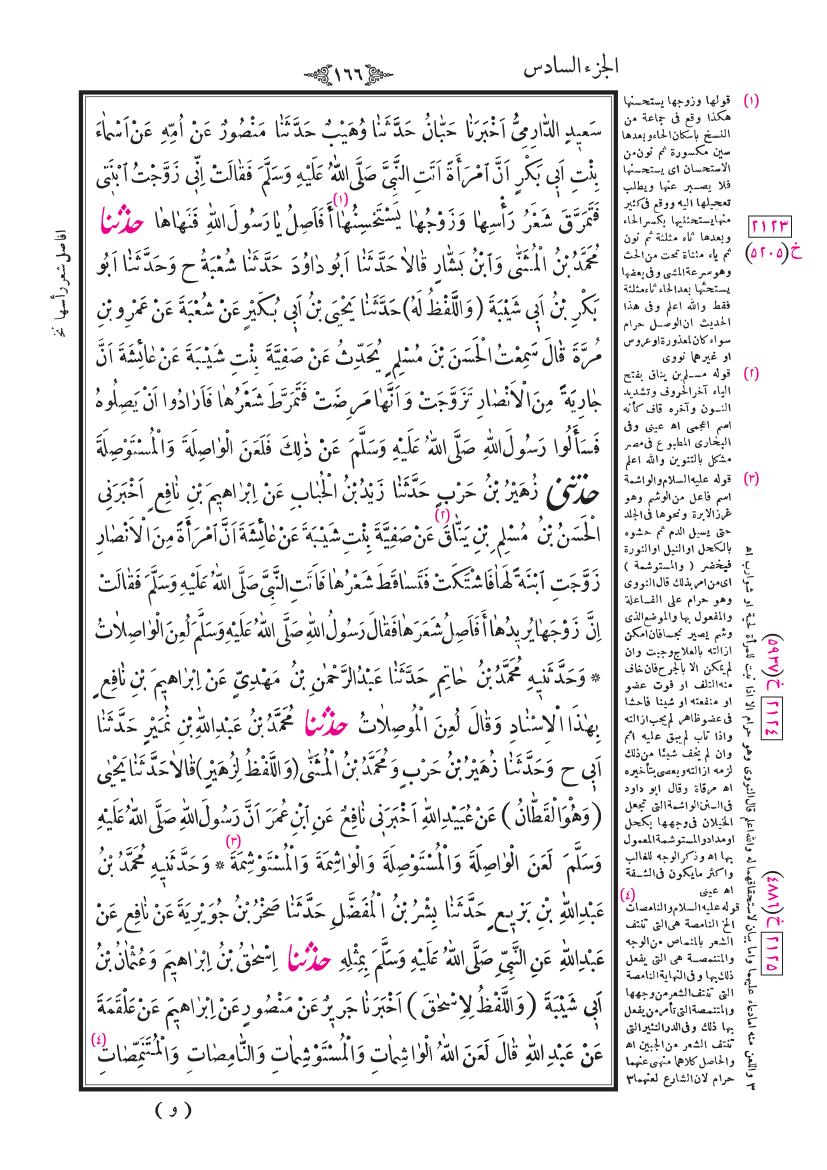 الجزء السادس
١٦٦
سَعِيدٍ الدَّارِمِيُّ اَخْبَرَنَا حَبَّانُ حَدَّثَنَا وُهَيْبٌ حَدَّثَنَا مَنْصُورٌ عَنْ اُمِّهِ عَنْ اَسْمَاءَ
بِنْتِ اَبِي بَكْرٍ اَنَّ اَمْرَأَةً اَتَتِ النَّبِيَّ صَلَّى اللهُ عَلَيْهِ وَسَلَّمَ فَقَالَتْ اِنِّى زَوَّجْتُ اَبْنَتِى
فَتَمَرَّقَ شَعْرُ رَأْسِهَا وَزَوْجُهَا يَسْتَحْسِنُهَا(١) أَفَأَصِلُ يَا رَسُولَ اللهِ فَنَهَاهَا حدثنا
مُحَمَّدُ بْنُ الْمُثَنّٰى وَابْنُ بَشَّارٍ قَالَا حَدَّثَنَا اَبُو دَاوُدَ حَدَّثَنَا شُعْبَةُ ح وَحَدَّثَنَا اَبُو
بَكْرِ بْنُ اَبِي شَيْبَةَ (وَاللَّفْظُ لَهُ) حَدَّثَنَا يَحْيَى بْنُ اَبِي بُكَيْرٍ عَنْ شُعْبَةَ عَنْ عَمْرِو بْنِ
مُرَّةَ قَالَ سَمِعْتُ الْحَسَنَ بْنَ مُسْلِمٍ يُحَدِّثُ عَنْ صَفِيَّةَ بِنْتِ شَيْبَةَ عَنْ عَائِشَةَ اَنَّ
جَارِيَةً مِنَ الْاَنْصَارِ تَزَوَّجَتْ وَاَنَّهَا مَرِضَتْ فَتَمَرَّطَ شَعْرُهَا فَاَرَادُوا اَنْ يَصِلُوهُ
فَسَأَلُوا رَسُولَ اللهِ صَلَّى اللهُ عَلَيْهِ وَسَلَّمَ عَنْ ذٰلِكَ فَلَعَنَ الْوَاصِلَةَ وَالْمُسْتَوْصِلَةَ
حدثنى زُهَيْرُ بْنُ حَرْبٍ حَدَّثَنَا زَيْدُ بْنُ الْحُبَابِ عَنْ اِبْرَاهِيمَ بْنِ نَافِعٍ اَخْبَرَنِى
الْحَسَنُ بْنُ مُسْلِمِ بْنِ يَنَّاقَ(٢) عَنْ صَفِيَّةَ بِنْتِ شَيْبَةَ عَنْ عَائِشَةَ اَنَّ اَمْرَأَةً مِنَ الْاَنْصَارِ
زَوَّجَتِ ابْنَةً لَهَا فَاشْتَكَتْ فَتَسَاقَطَ شَعْرُهَا فَاَتَتِ النَّبِيَّ صَلَّى اللهُ عَلَيْهِ وَسَلَّمَ فَقَالَتْ
اِنَّ زَوْجَهَا يُرِيدُهَا أَفَأَصِلُ شَعَرَهَا فَقَالَ رَسُولُ اللهِ صَلَّى اللهُ عَلَيْهِ وَسَلَّمَ لُعِنَ الْوَاصِلَاتُ
* وَحَدَّثَنِيهِ مُحَمَّدُ بْنُ حَاتِمٍ حَدَّثَنَا عَبْدُ الرَّحْمٰنِ بْنُ مَهْدِيٍّ عَنْ اِبْرَاهِيمَ بْنِ نَافِعٍ
بِهٰذَا الْاِسْنَادِ وَقَالَ لُعِنَ الْمُوصِلَاتُ حدثنا مُحَمَّدُ بْنُ عَبْدِ اللهِ بْنِ نُمَيْرٍ حَدَّثَنَا
اَبِى ح وَحَدَّثَنَا زُهَيْرُ بْنُ حَرْبٍ وَمُحَمَّدُ بْنُ الْمُثَنّٰى (وَاللَّفْظُ لِزُهَيْرٍ) قَالَا حَدَّثَنَا يَحْيٰى
(وَهُوَ الْقَطَّانُ) عَنْ عُبَيْدِ اللهِ اَخْبَرَنِى نَافِعٌ عَنِ ابْنِ عُمَرَ اَنَّ رَسُولَ اللهِ صَلَّى اللهُ عَلَيْهِ
وَسَلَّمَ لَعَنَ الْوَاصِلَةَ وَالْمُسْتَوْصِلَةَ وَالْوَاشِمَةَ وَالْمُسْتَوْشِمَةَ(٣) * وَحَدَّثَنِيهِ مُحَمَّدُ بْنُ
عَبْدِ اللهِ بْنِ بَزِيعٍ حَدَّثَنَا بِشْرُ بْنُ الْمُفَضَّلِ حَدَّثَنَا صَخْرُ بْنُ جُوَيْرِيَةَ عَنْ نَافِعٍ عَنْ
عَبْدِ اللهِ عَنِ النَّبِيِّ صَلَّى اللهُ عَلَيْهِ وَسَلَّمَ بِمِثْلِهِ حدثنا اِسْحٰقُ بْنُ اِبْرَاهِيمَ وَعُثْمَانُ بْنُ
اَبِى شَيْبَةَ (وَاللَّفْظُ لِاِسْحٰقَ) اَخْبَرَنَا جَرِيرٌ عَنْ مَنْصُورٍ عَنْ اِبْرَاهِيمَ عَنْ عَلْقَمَةَ
عَنْ عَبْدِ اللهِ قَالَ لَعَنَ اللهُ الْوَاشِمَاتِ وَالْمُسْتَوْشِمَاتِ وَالنَّامِصَاتِ وَالْمُتَنَمِّصَاتِ(٤)
( و )
افاصل شعر رأسها نخ
(١) قولها وزوجها يستحسنها
هكذا وقع فى جماعة من
النسخ باسكان الحاء وبعدها
سين مكسورة ثم نون من
الاستحسان اى يستحسنها
فلا يصبر عنها ويطلب
تعجيلها اليه ووقع فى كثير
منها يستحثنيها بكسر الحاء
وبعدها ثاء مثلثة ثم نون
ثم ياء مثناة تحت من الحث
وهو سرعة المشى وفى بعضها
يستحثها بعد الحاء ثاء مثلثة
فقط والله اعلم وفى هذا
الحديث ان الوصل حرام
سواء كان لمعذورة او عروس
او غيرها نووى
(٢) قوله مسلم بن يناق بفتح
الياء آخر الحروف وتشديد
النون وآخره قاف كأنه
اسم اعجمى اه عينى وفى
البخارى المطبوع فى مصر
مشكل بالتنوين والله اعلم
(٣) قوله عليه السلام والواشمة
اسم فاعل من الوشم وهو
غرز الابرة ونحوها فى الجلد
حتى يسيل الدم ثم حشوه
بالكحل او النيل او النورة
فيخضر ( والمستوشمة )
اى من امر بذلك قال النووى
وهو حرام على الفاعلة
والمفعول بها والموضع الذى
وشم يصير نجسا فان امكن
ازالته بالعلاج وجبت وان
لم يمكن الا بالجرح فان خاف
منه التلف او فوت عضو
او منفعته او شيئا فاحشا
فى عضو ظاهر لم يجب ازالته
واذا تاب لم يبق عليه اثم
وان لم يخف شيئا من ذلك
لزمه ازالته ويعصى بتأخيره
اه مرقاة وقال ابو داود
فى السنن الواشمة التى تجعل
الخيلان فى وجهها بكحل
او مداد والمستوشمة المعمول
بها اه وذكر الوجه للغالب
واكثر ما يكون فى الشفة
اه عينى
(٤) قوله عليه السلام والنامصات
الخ النامصة هى التى تنتف
الشعر بالمنماص من الوجه
والمتنمصة هى التى يفعل
ذلك بها وفى النهاية النامصة
التى تنتف الشعر من وجهها
والمتنمصة التى تأمر من يفعل
بها ذلك وفى الدر النثير التى
تنتف الشعر من الجبين اه
والحاصل كلاها منهى عنهما
حرام لان الشارع لعنهما ٣
٣ واللعن منه امادعاء عليهما واما بيان لاستحقاقهما له والله اعلم قال النووى وهو حرام الا اذا نبت للمرأة لحية او شوارب اه
٢١٢٣
خ (٥٢٠٥)
خ (٥٩٣٧)
٢١٢٤
خ (٤٨٨٦)
٢١٢٥